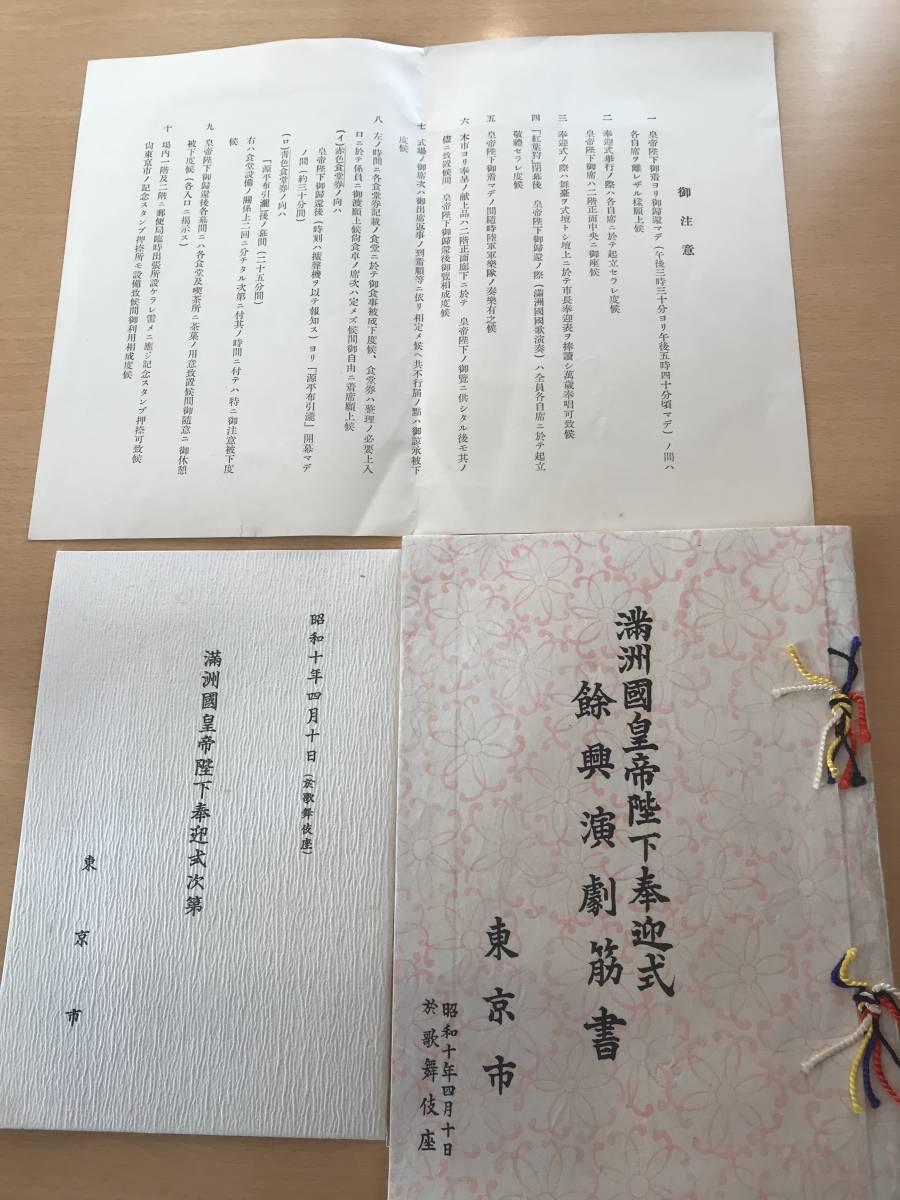 御注意
一 皇帝陛下御着ヨリ御歸還マデ(午後三時三十分ヨリ午後五時四十分頃マデ)ノ間ハ
各自席ヲ離レザル樣願上候
二 奉迎式擧行ノ際ハ各自席ニ於テ起立セラレ度候
皇帝陛下御席ハ二階正面中央ニ御座候
三 奉迎式ノ際ハ舞臺ヲ式壇トシ壇上ニ於テ市長奉迎表ヲ捧讀シ萬歲奉唱可致候
四 「紅葉狩」閉幕後 皇帝陛下御歸還ノ際(滿洲國國歌演奏)ハ全員各自席ニ於テ起立
敬禮セラレ度候
五 皇帝陛下御着マデノ間隨時陸軍軍樂隊ノ奏樂有之候
六 本市ヨリ奉呈ノ獻上品ハ二階正面廊下ニ於テ 皇帝陛下ノ御覽ニ供シタル後モ其ノ
儘ニ致置候間 皇帝陛下御歸還後御覽相成度候
七 式場ノ御席次ハ御出席返事ノ到着順等ニ依リ相定メ候ヘ共不行屆ノ點ハ御諒承被下
度候
八 左ノ時間ニ各食堂券記載ノ食堂ニ於テ御食事被成下度候、食堂券ハ整理ノ必要上入
口ニ於テ係員ニ御渡願上候尙食卓ノ席次ハ定メズ候間御自由ニ着席願上候
(イ)赤色食堂券ノ向ハ
皇帝陛下御歸還後(時刻ハ擴聲機ヲ以テ報知ス)ヨリ「源平布引瀧」開幕マデ
ノ間(約三十分間)
(ロ)靑色食堂券ノ向ハ
「源平布引瀧」後ノ幕間(二十五分間)
右ハ食堂設備ノ關係上二回ニ分チタル次第ニ付其ノ時間ニ付テハ特ニ御注意被下度
候
九 皇帝陛下御歸還後各幕間ニハ各食堂及喫茶所ニ茶菓ノ用意致置候間御隨意ニ御休憩
被下度候(各入口ニ揭示ス)
十 場內一階及二階ニ郵便局臨時出張所設ケラレ需メニ應ジ記念スタンプ押捺可致候
尙東京市ノ記念スタンプ押捺所モ設備致候間御利用相成度候
昭和十年四月十日(於歌舞伎座)
滿洲國皇帝陛下奉迎式次第
東京市
滿洲國皇帝陛下奉迎式
餘興演劇筋書
東京市
昭和十年四月十日
於歌舞伎座